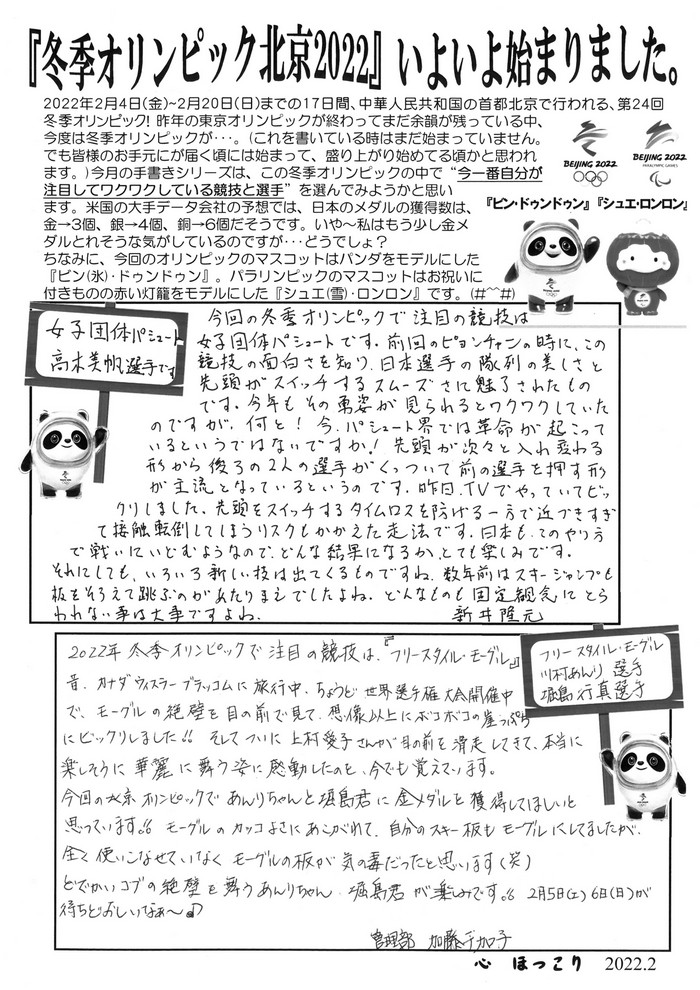 『冬季オリンピック北京2022』いよいよ始まりました。
2022年2月4日(金)~2月20日(日)までの17日間、中華人民共和国の首都北京で行われる、第24回
冬季オリンピック! 昨年の東京オリンピックが終わってまだ余韻が残っている中、
今度は冬季オリンピックが・・・。(これを書いている時はまだ始まっていません。
でも皆様のお手元にが届く頃には始まって、盛り上がり始めてる頃かと思われ
ます。)今月の手書きシリーズは、この冬季オリンピックの中で“今一番自分が
注目してワクワクしている競技と選手”を選んでみようかと思い
ます。米国の大手データ会社の予想では、日本のメダルの獲得数は、
金→3個、銀→4個、銅→6個だそうです。いや～私はもう少し金メ
ダルとれそうな気がしているのですが・・・どうでしょ？
ちなみに、今回のオリンピックのマスコットはパンダをモデルにした
『ビン(氷)・ドゥンドゥン』。パラリンピックのマスコットはお祝いに
付きものの赤い灯籠をモデルにした『シュエ(雪)・ロンロン』です。(#^^#)
BEIJING 2022
BEIJING 2022
PARALYMPIC GAMES
『ビン・ドゥンドゥン』『シュエ・ロンロン』
女子団体パシュート
高木美帆選手です
今回の冬季オリンピックで注目の競技は
女子団体パシュートです。前回のピョンチャンの時に、この
競技の面白さを知り、日本選手の隊列の美しさと
先頭がスイッチするスムーズさに魅了されたもの
です。今年もその勇姿が見られるとワクワクしていた
のですが、何と！今、パシュート界では革命が起こって
いるというではないですか！先頭が次々と入れ変わる
形から後ろの2人の選手がくっついて前の選手を押す形
が主流となっているというのです。昨日、TVでやっていてビッ
クリしました。先頭をスイッチするタイムロスを防げる一方で近づきすぎ
て接触転倒してしまうリスクもかかえた走法です。日本も、このやり方
で戦いにいどむようなので、どんな結果になるか、とても楽しみです。
それにしても、いろいろ新しい技は出てくるものですね。数年前はスキージャンプも
板をそろえて跳ぶのがあたりまえでしたよね。どんなものも固定観念にとら
われない事は大事ですよね。 新井隆元
フリースタイル・モーグル
川村あんり 選手
堀島行真選手
2022年 冬季オリンピックで注目の競技は、『フリースタイル・モーグル』
昔、カナダウィスラーブラッコムに旅行中、ちょうど世界選手権大会開催中
で、モーグルの絶壁を目の前で見て、想像以上にボコボコの崖っぷち
にビックリしました!! そしてついに上村愛子さんが目の前を滑走してきて、本当に
楽しそうに華麗に舞う姿に感動したのを、今でも覚えています。
今回の北京オリンピックであんりちゃんと堀島君に金メダルを獲得してほしいと
思っています。モーグルのカッコよさにあこがれて、自分のスキー板もモーグルにしてましたが、
全く使いこなせていなくモーグルの板が気の毒だったと思います(笑)
どでかいコブの絶壁を舞うあんりちゃん、堀島君が楽しみです。2月5日(土)6日(日)が
待ちどおしいなぁ～♪
管理部 加藤千加子
心 ほっこり 2022.2